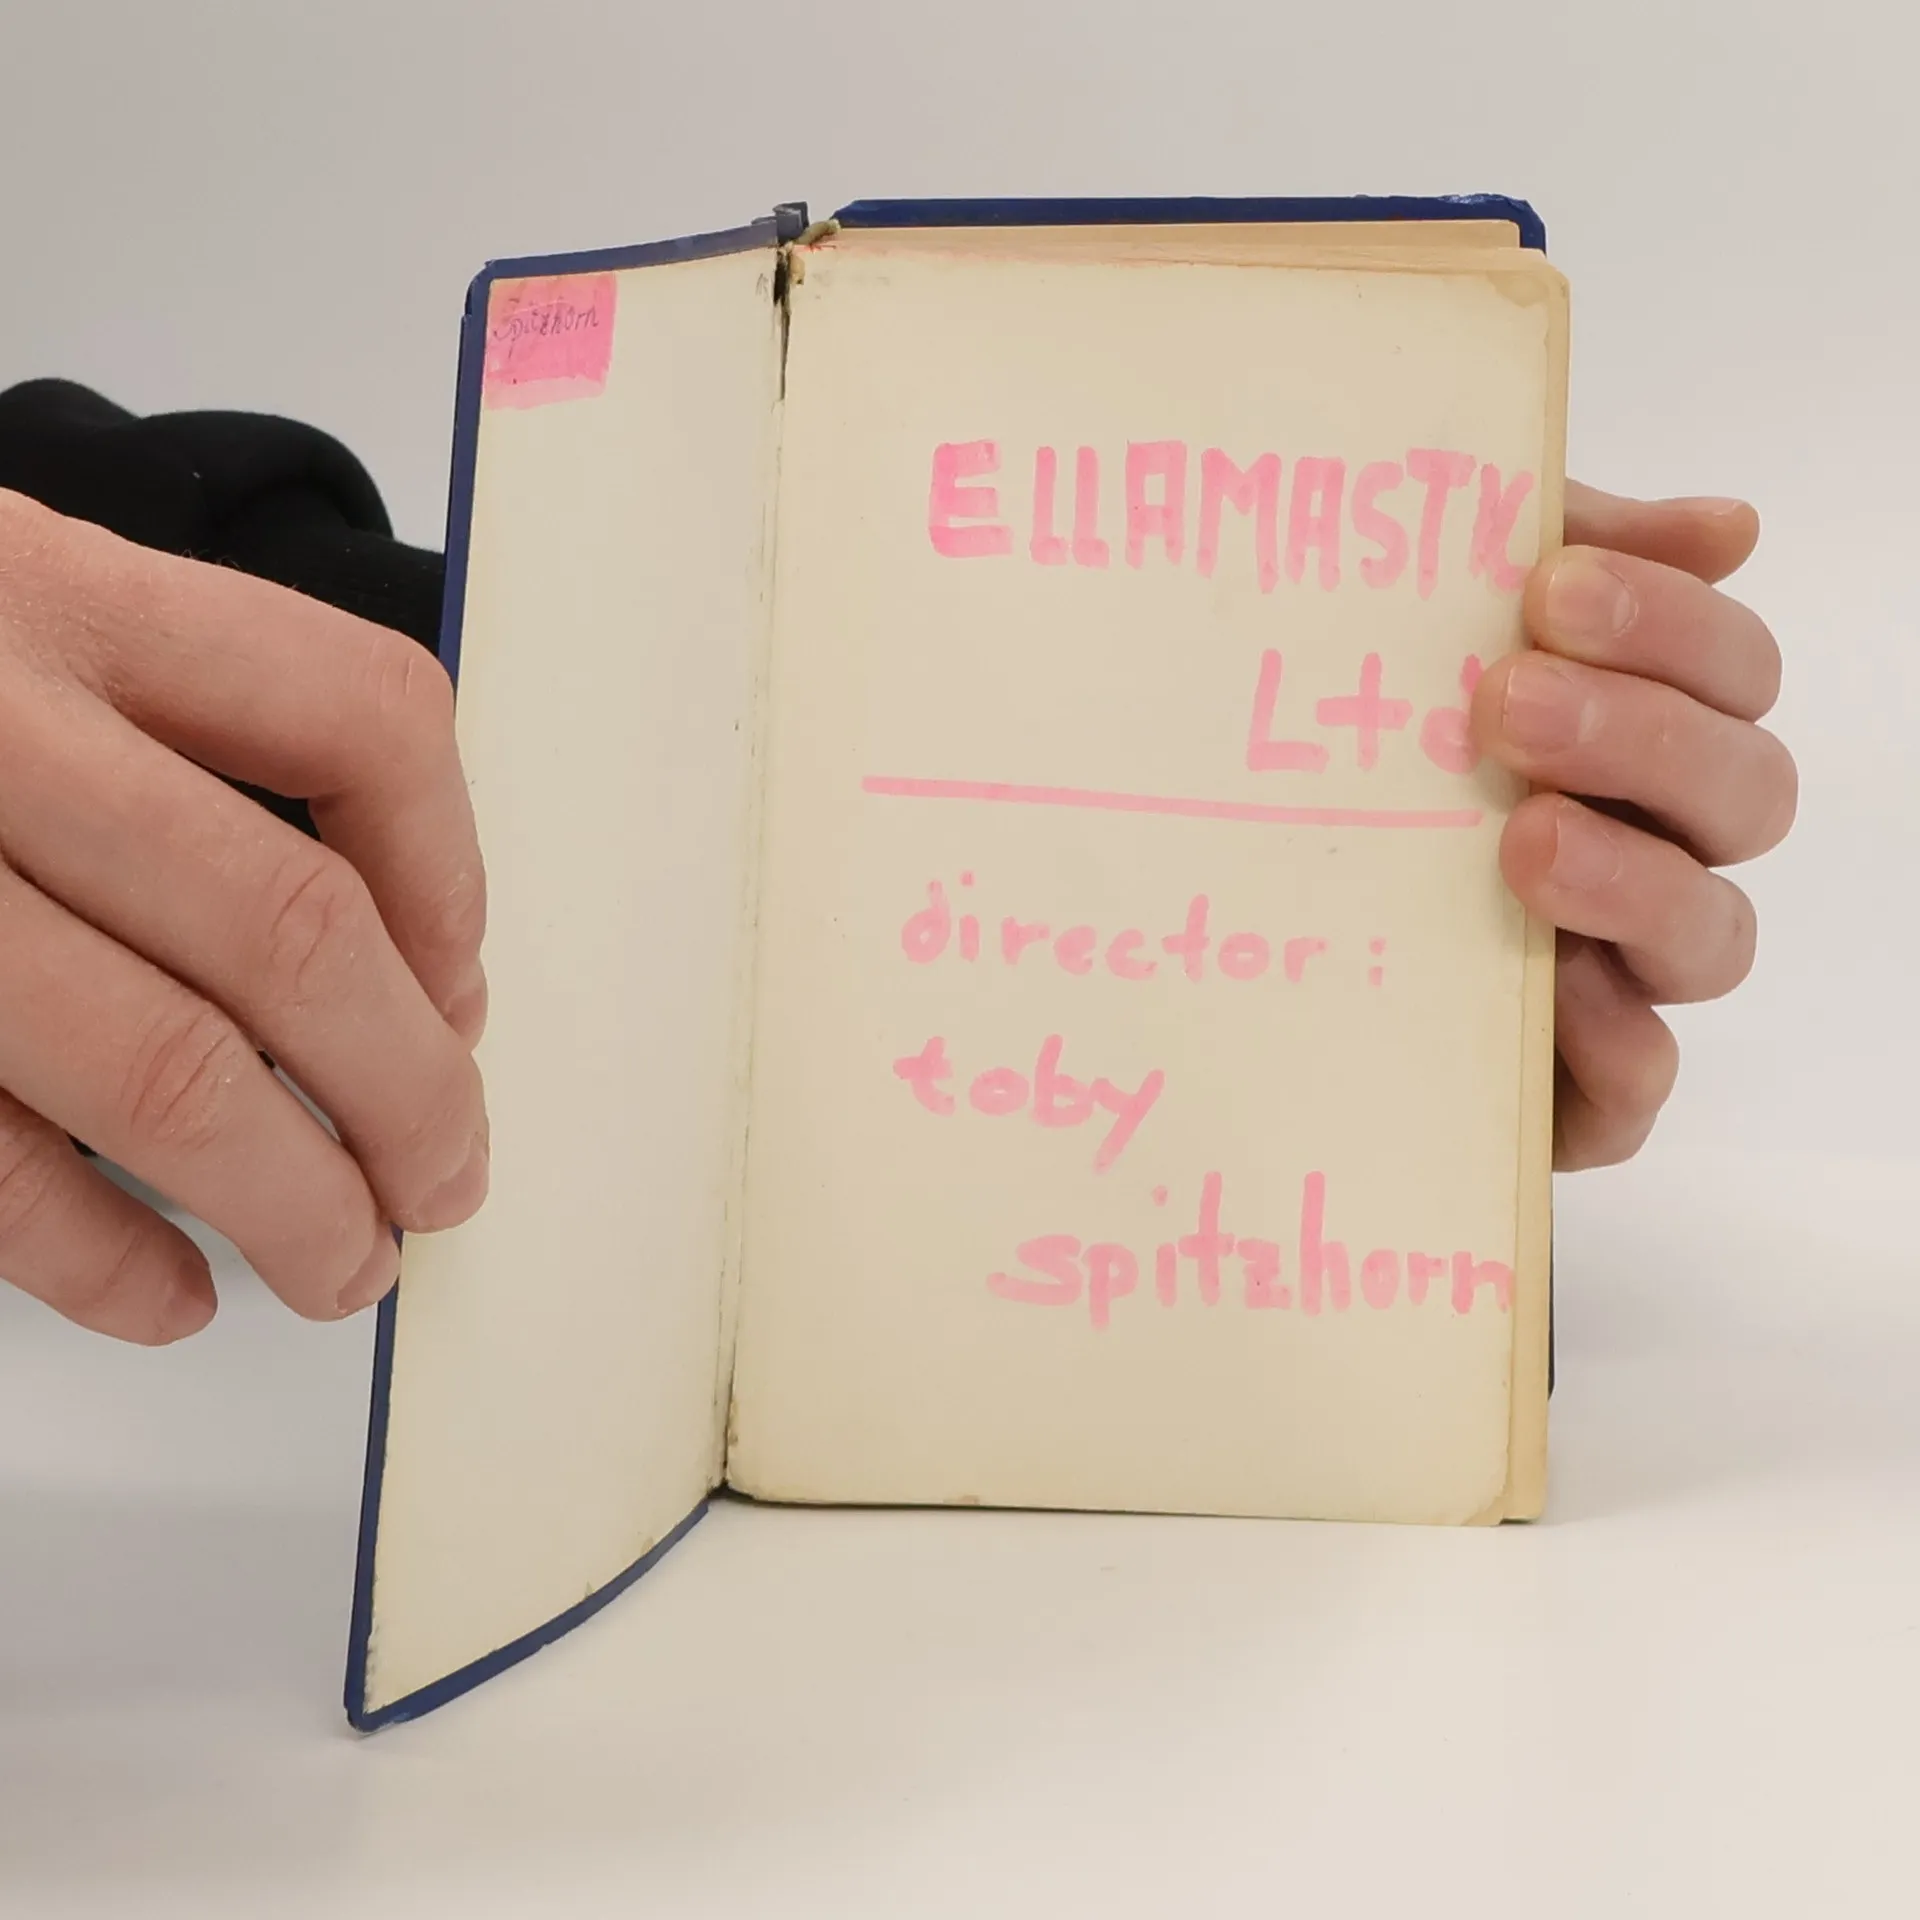 Spitzhorn
ELLAMASTIC
Ltd
director:
toby
spitzhorn